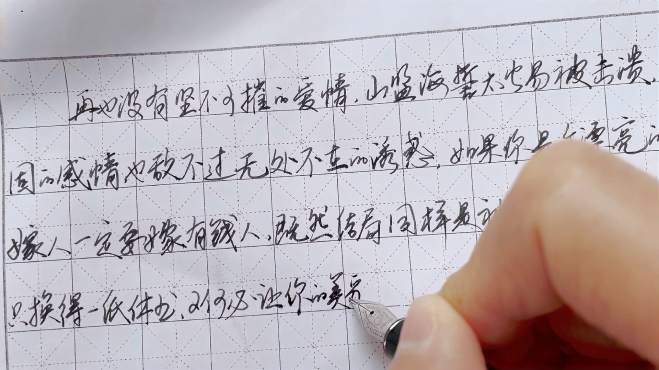 再也没有坚不可摧的爱情,山盟海誓太容易被击溃,
固的感情也敌不过无处不在的诱惑,如果你是个漂亮的
嫁人一定要嫁有钱人,既然结局同样是被
只换得一纸休书,又何必让你的美